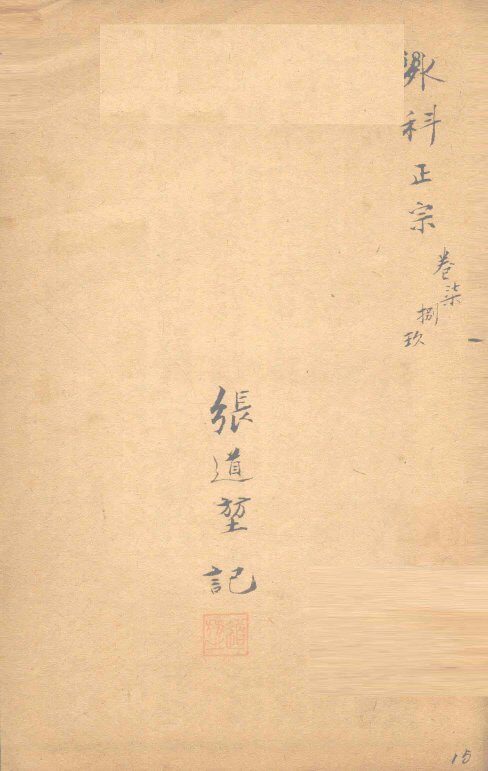 外科正宗
卷柒
捌
玖
張道堃記
15